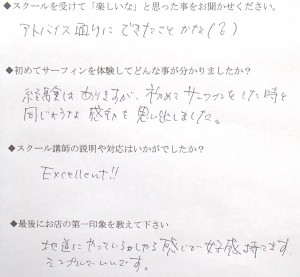 ◆スクールを受けて「楽しいな」と思った事をお聞かせください。
アドバイス通りにできたことかな(？)
◆初めてサーフィンを体験してどんな事が分かりましたか？
経験はありますが、初めてサーフィンをした時を
同じような感動を思い出しました。
◆スクール講師の説明や対応はいかがでしたか？
Excellent!!
◆最後にお店の第一印象を教えて下さい
地道にやっているっしゃる感じが好感持てます
シンプルでいいです。